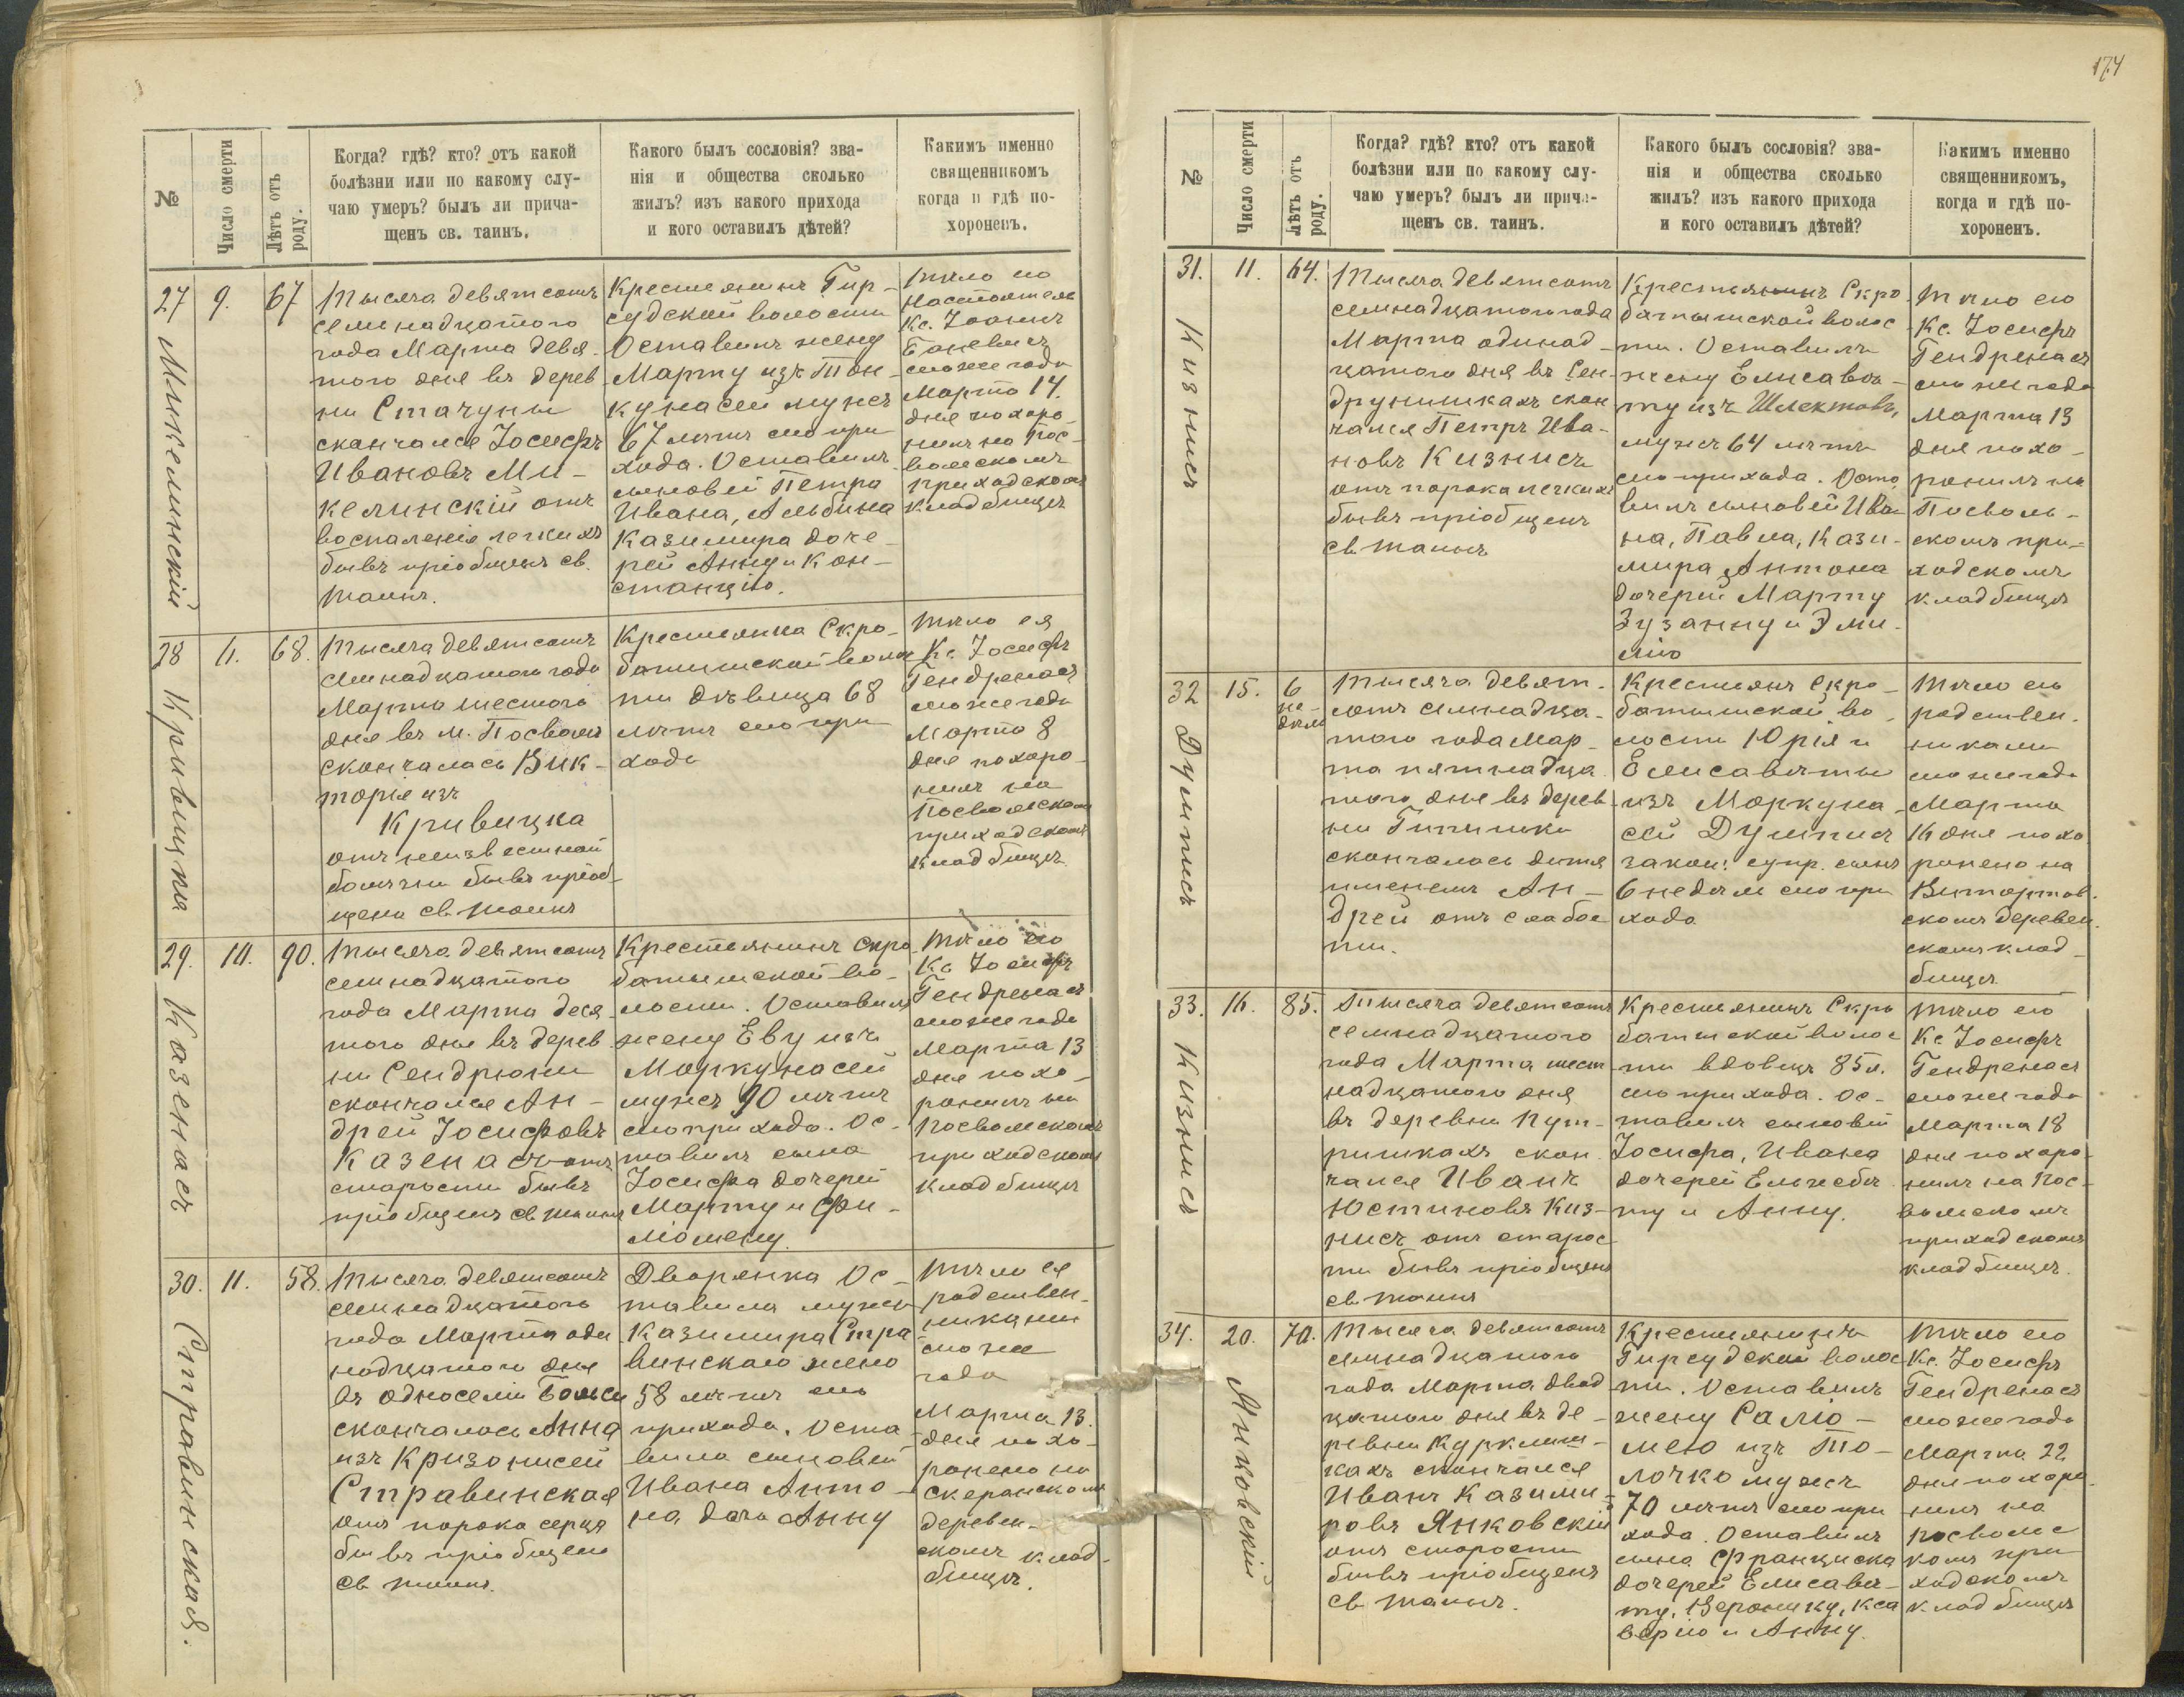 174
№
Число смерти
Лѣтъ отъ роду.
Когда? гдѣ? кто? отъ какой
болѣзни или по какому слу-
чаю умеръ? былъ ли прича-
щенъ св. таинъ.
Какого былъ сословія? зва-
нія и общества сколько
жилъ? изъ какого прихода
и кого оставилъ дѣтей?
Какимъ именно
священникомъ
когда и гдѣ по-
хороненъ.
27
Микелинскій
9.
67
Тысяча девятсотъ
семнадцатого
года Марта девя-
того дня въ дерев
ни Стачуны
скончался Іосифъ
Ивановъ Ми-
келинскій отъ
воспаленія легкихъ
бывъ пріобщенъ св.
таинъ.
Крестянинъ Гир-
судской волости
Оставилъ жену
Марту изъ Тон-
кунасей мужъ
67 лѣтъ его при
хода. Оставилъ
сыновей Петра
Ивана, Альбина
Казимира доче-
рей Анну и Кон-
станцію.
Тѣло его
Настоятель
Кс. Іоаннъ
сего же года
Марта 14.
дня похоро-
нилъ на Пос-
вольскомъ
приходскомъ
кладбищѣ
28
Кривицка
68.
Тысяча девятсотъ
семнадцатого года
Марта шестого
дня въ м. Посволѣ
скончалась Вик-
торія изъ
Кривицка
отъ неизвестной
болѣзни бывъ пріоб-
щена св таинъ
Крестянка Скро-
батишской волос
ти дѣвица 68
лѣтъ его при
хода
Тѣло ея
Кс. Іосифъ
Гендренасъ
сего же года
Марта 8
дня похоро-
нилъ на
Посвольском
приходскомъ
кладбищѣ
29.
Казенасъ
10.
90.
Тысяча девятсотъ
семнадцатого
года Марта деся-
того дня въ дерев
ни Сендрюни
скончался Ан-
дрей Іосифовъ
Казенасъ отъ
старости бывъ
пріобщенъ св таинъ
Крестянинъ Скро
батышской во-
лости. Оставилъ
жену Еву изъ
Моркунасей
мужъ 90 лѣтъ
его прихода. Ос-
тавилъ сына
Іосифа дочерей
Марту и Фи-
ліомену.
Тѣло его
Кс Іосифъ
Гендренасъ
сего же года
Марта 13
дня похо-
ронилъ на
Посвольскомъ
приходскомъ
кладбищѣ
30.
Стравинская.
11.
58.
Тысяча девятсотъ
семнадцатого
года Марта оди
надцатого дня
въ односеліи
скончалась Анна
изъ Кризонисей
Стравинская
отъ порока серця
бывъ пріобщена
св таинъ.
Дворянка Ос-
тавила мужа
Казимира Стра
винскаго жена
58 лѣтъ его
прихода. Оста-
вила сыновей
Ивана Анто-
на дочь Анну
Тѣло ея
родствен-
никами
сего же
года
Марта 13.
дня похо-
ронено на
деревен-
скомъ клад-
бищѣ.
№
Число смерти
Лѣтъ отъ роду.
Когда? гдѣ? кто? отъ какой
болѣзни или по какому слу-
чаю умеръ? былъ ли прича-
щенъ св. таинъ.
Какого былъ сословія? зва-
нія и общества сколько
жилъ? изъ какого прихода
и кого оставилъ дѣтей?
Какимъ именно
священникомъ,
когда и гдѣ по-
хороненъ.
31.
Кизнисъ
11.
64.
Тысяча девятсотъ
семнадцатого года
Марта одинад-
цатого дня въ Сен-
друнишкахъ скон
чался Петръ Ива-
новъ Кизнисъ
отъ порока легкихъ
бывъ пріобщенъ
св таинъ
Крестьянинъ Скро
батышской волос
ти. Оставилъ
жену Елисавѣ-
ту изъ Шлектовъ,
мужъ 64 лѣтъ
его прихода. Оста
вилъ сыновей Ива
на, Павла, Кази-
мира, Антона
дочерей Марту
Зузанну и Эми-
лію
Тѣло его
Кс. Іосифъ
Гендренасъ
сего же года
Марта 13
дня похо-
ронилъ на
Посволь-
скомъ при-
ходскомъ
кладбищѣ
32
Думписъ
15.
6
не-
дѣль
Тысяча девят-
сотъ семнадца-
того года Мар-
та пятнадца
того дня въ дерев
ни Гипишки
скончалось дитя
именемъ Ан-
дрей отъ слабос
ти.
Крестянъ Скро-
батышской во-
лости Юрія и
Елисаветы
изъ Моркуна-
сей Думписъ
закон: супр. сынъ
6 недѣль его при
хода
Тѣло его
родствен-
никами
сего же года
Марта
16 дня похо
ронено на
скомъ деревен
скомъ клад-
бищѣ
33.
Кизнисъ
16.
85.
Тысяча девятсотъ
семнадцатого
года Марта шест
надцатого дня
въ деревни Пут-
ришкахъ скон
чался Иванъ
Юстиновъ Киз-
нисъ отъ старос
ти бывъ пріобщенъ
св таинъ
Крестянинъ Скро
батишской волос
ти вдовецъ 85 л.
его прихода. Ос-
тавилъ сыновей
Іосифа, Ивана
дочерей Ельжебѣ-
ту и Анну.
Тѣло его
Кс Іосифъ
Гендренасъ
сего же года
Марта 18
дня похоро
нилъ на Пос-
вольскомъ
приходскомъ
кладбищѣ.
34.
Янковскій
20.
70.
Тысяча девятсотъ
семнадцатого
года Марта двад
цатого дня въ де-
ревни Курклиш-
кахъ скончался
Иванъ Казими-
ровъ Янковскій
отъ старости
бывъ пріобщенъ
св таинъ.
Крестянинъ
Гирсудской волос
ти. Оставилъ
жену Саліо-
мею изъ То-
лочко мужъ
70 лѣтъ его при
хода. Оставилъ
сына Франциска
дочерей Елисаве-
ту, Веронику, Кса
верію и Анну.
Тѣло его
Кс. Іосифъ
Гендренасъ
сего же года
Марта 22
дня похоро
нилъ на
Посволс
комъ при
ходскомъ
кладбищѣ